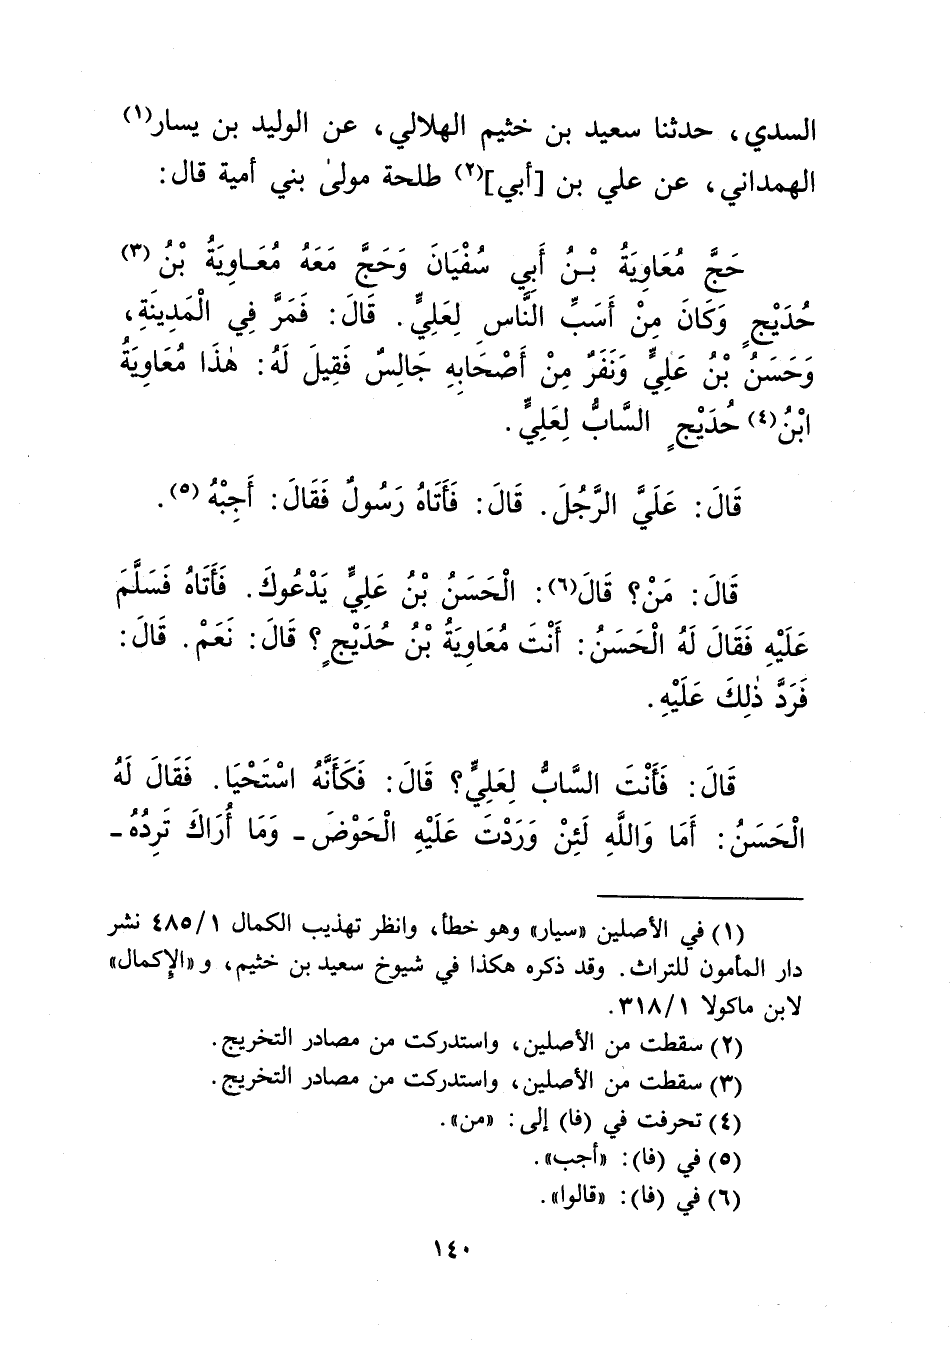 السدي، حدثنا سعيد بن خثيم الهلالي، عن الوليد بن يسار(١)
الهمداني، عن علي بن [أبي](٢) طلحة مولىٰ بني أمية قال:
حَجَّ مُعَاوِيَةُ بْنُ أَبِي سُفْيَانَ وَحَجَّ مَعَهُ مُعَاوِيَةُ بْنُ (٣)
حُدَيْجٍ وَكَانَ مِنْ أَسَبِّ النَّاسِ لِعَلِيٍّ. قَالَ: فَمَرَّ فِي الْمَدِينَةِ،
وَحَسَنُ بْنُ عَلِيٍّ وَنَفَرٌ مِنْ أَصْحَابِهِ جَالِسٌ فَقِيلَ لَهُ: هٰذَا مُعَاوِيَةُ
ابْنُ(٤) حُدَيْجٍ السَّابُّ لِعَلِيٍّ.
قَالَ: عَلَيَّ الرَّجُلَ. قَالَ: فَأَتَاهُ رَسُولٌ فَقَالَ: أَجِبْهُ (٥).
قَالَ: مَنْ؟ قَالَ(٦): الْحَسَنُ بْنُ عَلِيٍّ يَدْعُوكَ. فَأَتَاهُ فَسَلَّمَ
عَلَيْهِ فَقَالَ لَهُ الْحَسَنُ: أَنْتَ مُعَاوِيَةُ بْنُ حُدَيْجٍ؟ قَالَ: نَعَمْ. قَالَ:
فَرَدَّ ذٰلِكَ عَلَيْهِ.
قَالَ: فَأَنْتَ السَّابُّ لِعَلِيٍّ؟ قَالَ: فَكَأَنَّهُ اسْتَحْيَا. فَقَالَ لَهُ
الْحَسَنُ: أَمَا وَاللَّهِ لَئِنْ وَرَدْتَ عَلَيْهِ الْحَوْضَ ـ وَمَا أُرَاكَ تَرِدُهُ ـ
(١) في الأصلين «سيار» وهو خطأ، وانظر تهذيب الكمال ٤٨٥/١ نشر
دار المأمون للتراث. وقد ذكره هكذا في شيوخ سعيد بن خثيم، و«الإكمال»
لابن ماكولا ٣١٨/١.
(٢) سقطت من الأصلين، واستدركت من مصادر التخريج.
(٣) سقطت من الأصلين، واستدركت من مصادر التخريج.
(٤) تحرفت في (فا) إلى: «من».
(٥) في (فا): «أجب».
(٦) في (فا): «قالوا».
١٤٠